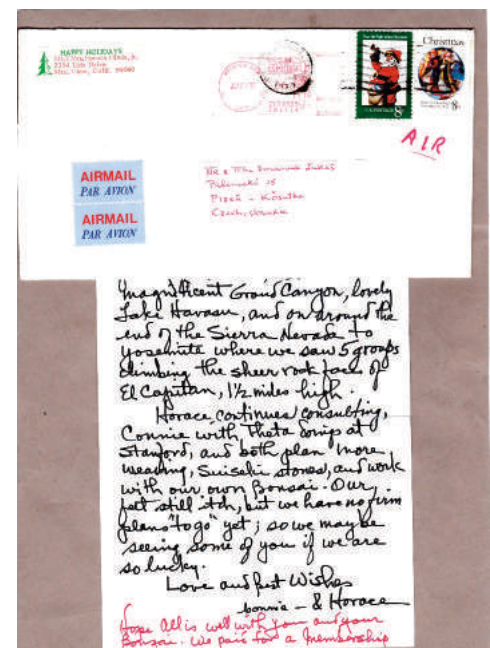 HAPPY HOLIDAYS
Christmas
8c
8c
AIR
AIRMAIL
PAR AVION
AIRMAIL
PAR AVION
Plzeň - Košutka
magnificent Grand Canyon, lovely
Lake Havasu, and on around the
end of the Sierra Nevada to
Yosemite where we saw 5 groups
climbing the sheer rock faces of
El Capitan, 1½ miles high.
Horace continues consulting,
Connie with Theta at
Stanford, and both plan more
weaving, Suiseki stones, and work
with our own Bonsai. Our
feet still itch, but we have no firm
plans "to go" yet; so we may be
seeing some of you if we are
so lucky.
Love and Best Wishes
Connie - & Horace
Hope All is well with you and your
Bonsai. We paid for a Membership